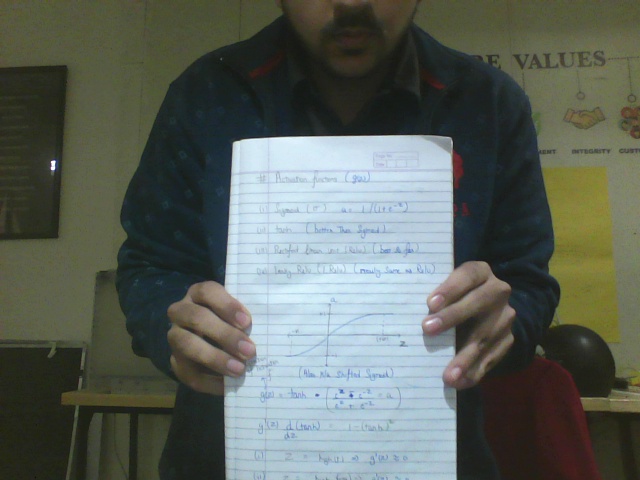 RE VALUES
MENT INTEGRITY CUSTO
# Activation functions (g(z))
(i) Sigmoid (σ) a = 1/(1+e^-z)
(ii) tanh (better than Sigmoid)
(iii) Rectified linear unit (ReLu) (best so far)
(iv) Leaky ReLu (L ReLu) (mostly same as ReLu)
a
z
(Also k/a Shifted Sigmoid)
g(z) = tanh = (e^z - e^-z / e^z + e^-z) = a
g'(z) d/dz (tanh) = 1 - (tanh)^2
(i) Z = high(+) ⇒ g'(z) ≈ 0